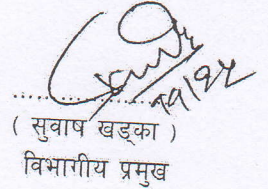 ( सुवाष खड्का )
विभागीय प्रमुख